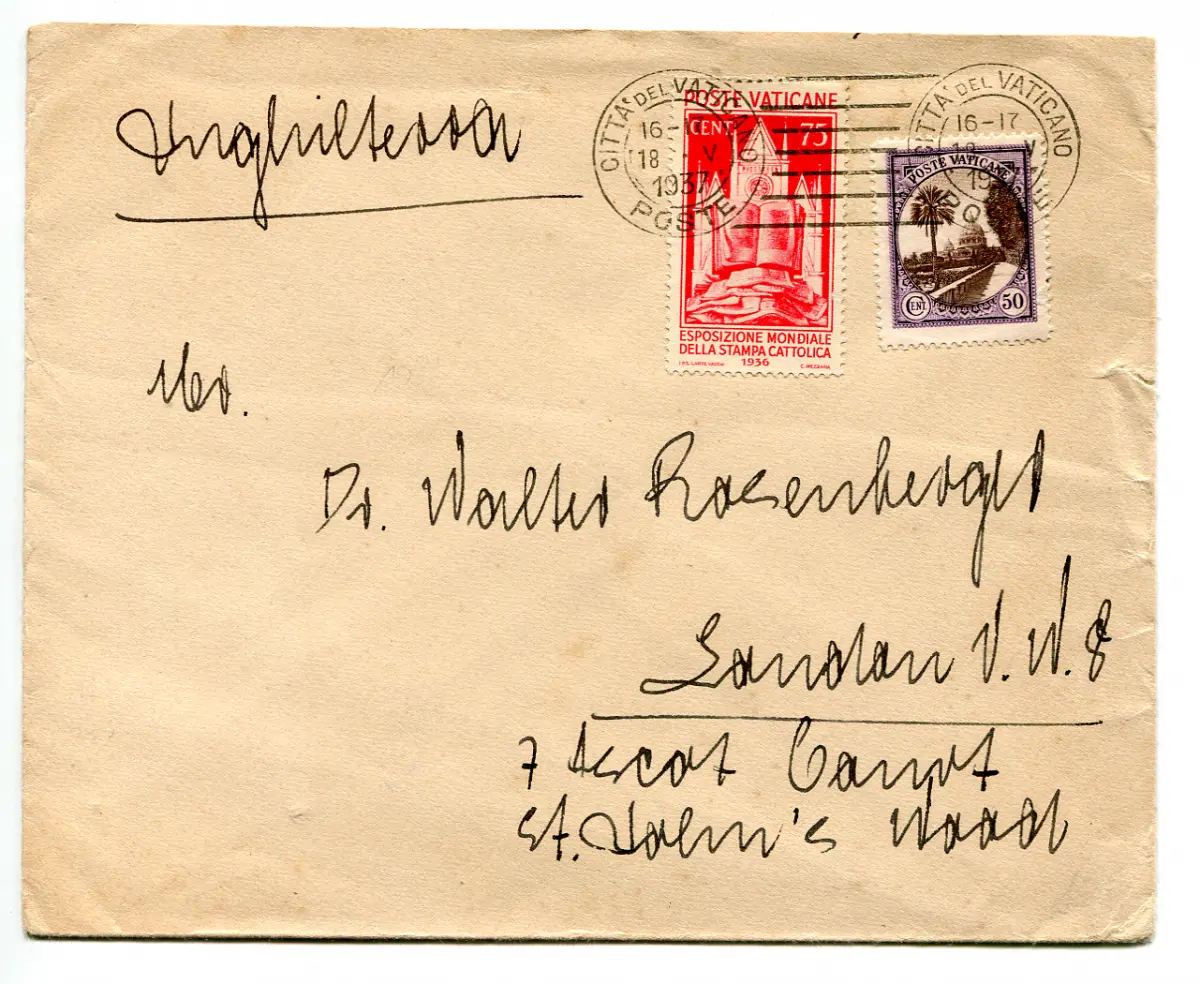 Inghilterra
CITTA' DEL VATICANO
16-17
18 V
1937
POSTE
CITTA' DEL VATICANO
16-17
18 V
19
POSTE
POSTE VATICANE
CENT 75
ESPOSIZIONE MONDIALE
DELLA STAMPA CATTOLICA
1936
C. MEZZANA
POSTE VATICANE
CENT 50
Mr.
Dr. Walter Rosenberger
London N.W. 8
7 Ascot Court
St. John's Wood